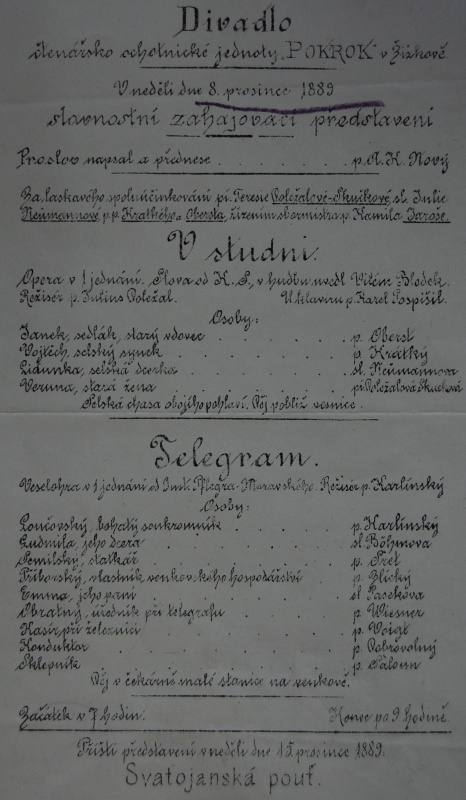 Divadlo
čtenářsko ochotnické jednoty "POKROK" v Žižkově.
V neděli dne 8. prosince 1889
slavnostní zahajovací představení
Proslov napsal a přednese . . . . . p. A. K. Nový
Za laskavého spoluúčinkování pí. Teresie Doležalové-Skučkové, sl. Julie
Neümannové p.p. Krátkého a Obersta, řízením sbormistra p. Kamila Jaroše.
V studni.
Opera v 1 jednání. Slova od K. S., v hudbu uvedl Vilém Blodek.
Režisér p. Julius Doležal. U klavíru p. Karel Pospíšil.
Osoby:
Janek, sedlák, starý vdovec . . . . p. Oberst
Vojtěch, selský synek . . . . . p. Krátký
Lidunka, selská dcerka . . . . . sl. Neümannova
Veruna, stará žena . . . . . pí. Doležalová Skučková
Selská chasa obojího pohlaví. Děj poblíž vesnice.
Telegram.
Veselohra v 1 jednání od Gust. Pflegra-Moravského. Režisér p. Karlínský
Osoby:
Loučovský, bohatý soukromník . . . . p. Karlínský
Ludmila, jeho dcera . . . . . sl. Böhmova
Semilský, statkář . . . . . p.
Příborský, vlastník venkovského hospodářství p.
Emma, jeho paní . . . . . sl. Pasekova
Obratný, úředník při telegrafu . . . . p. Wiesner
Hasič při železnici . . . . . p. Voigt
Konduktor . . . . . p. Dobrovolný
Sklepník . . . . . p.
Děj v čekárně malé stanice na venkově.
Začátek v 7 hodin. Konec po 9. hodině.
Příští představení v neděli dne 15. prosince 1889.
Svatojanská pouť.